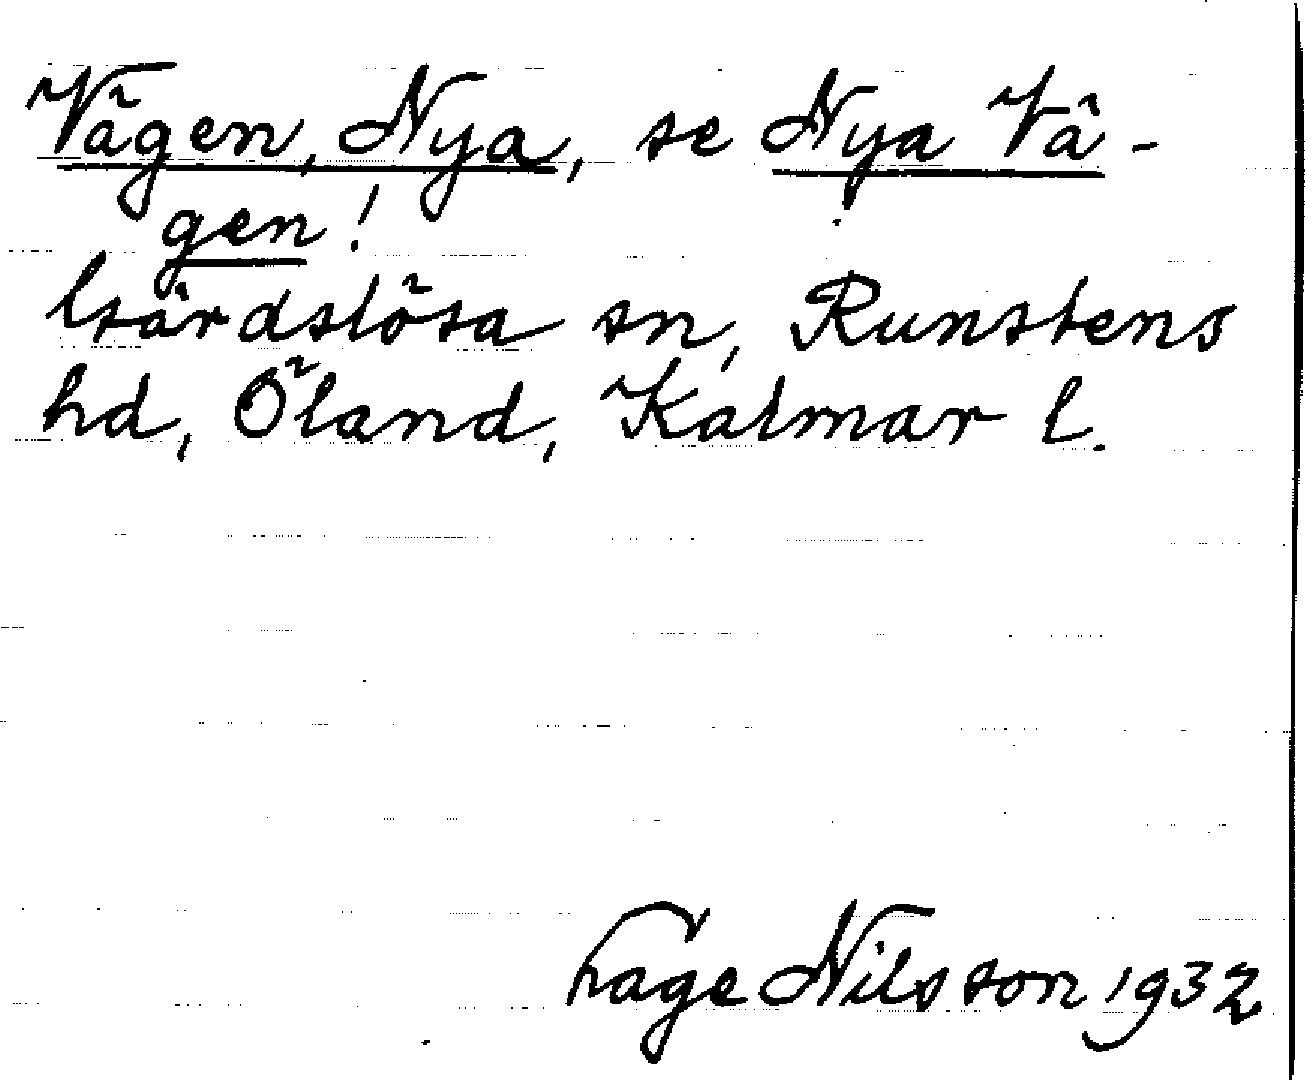 Vägen, Nya, se Nya Vä-
gen!
Gärdslösa sn, Runstens
hd, Öland, Kalmar l.
Tage Nilsson 1932